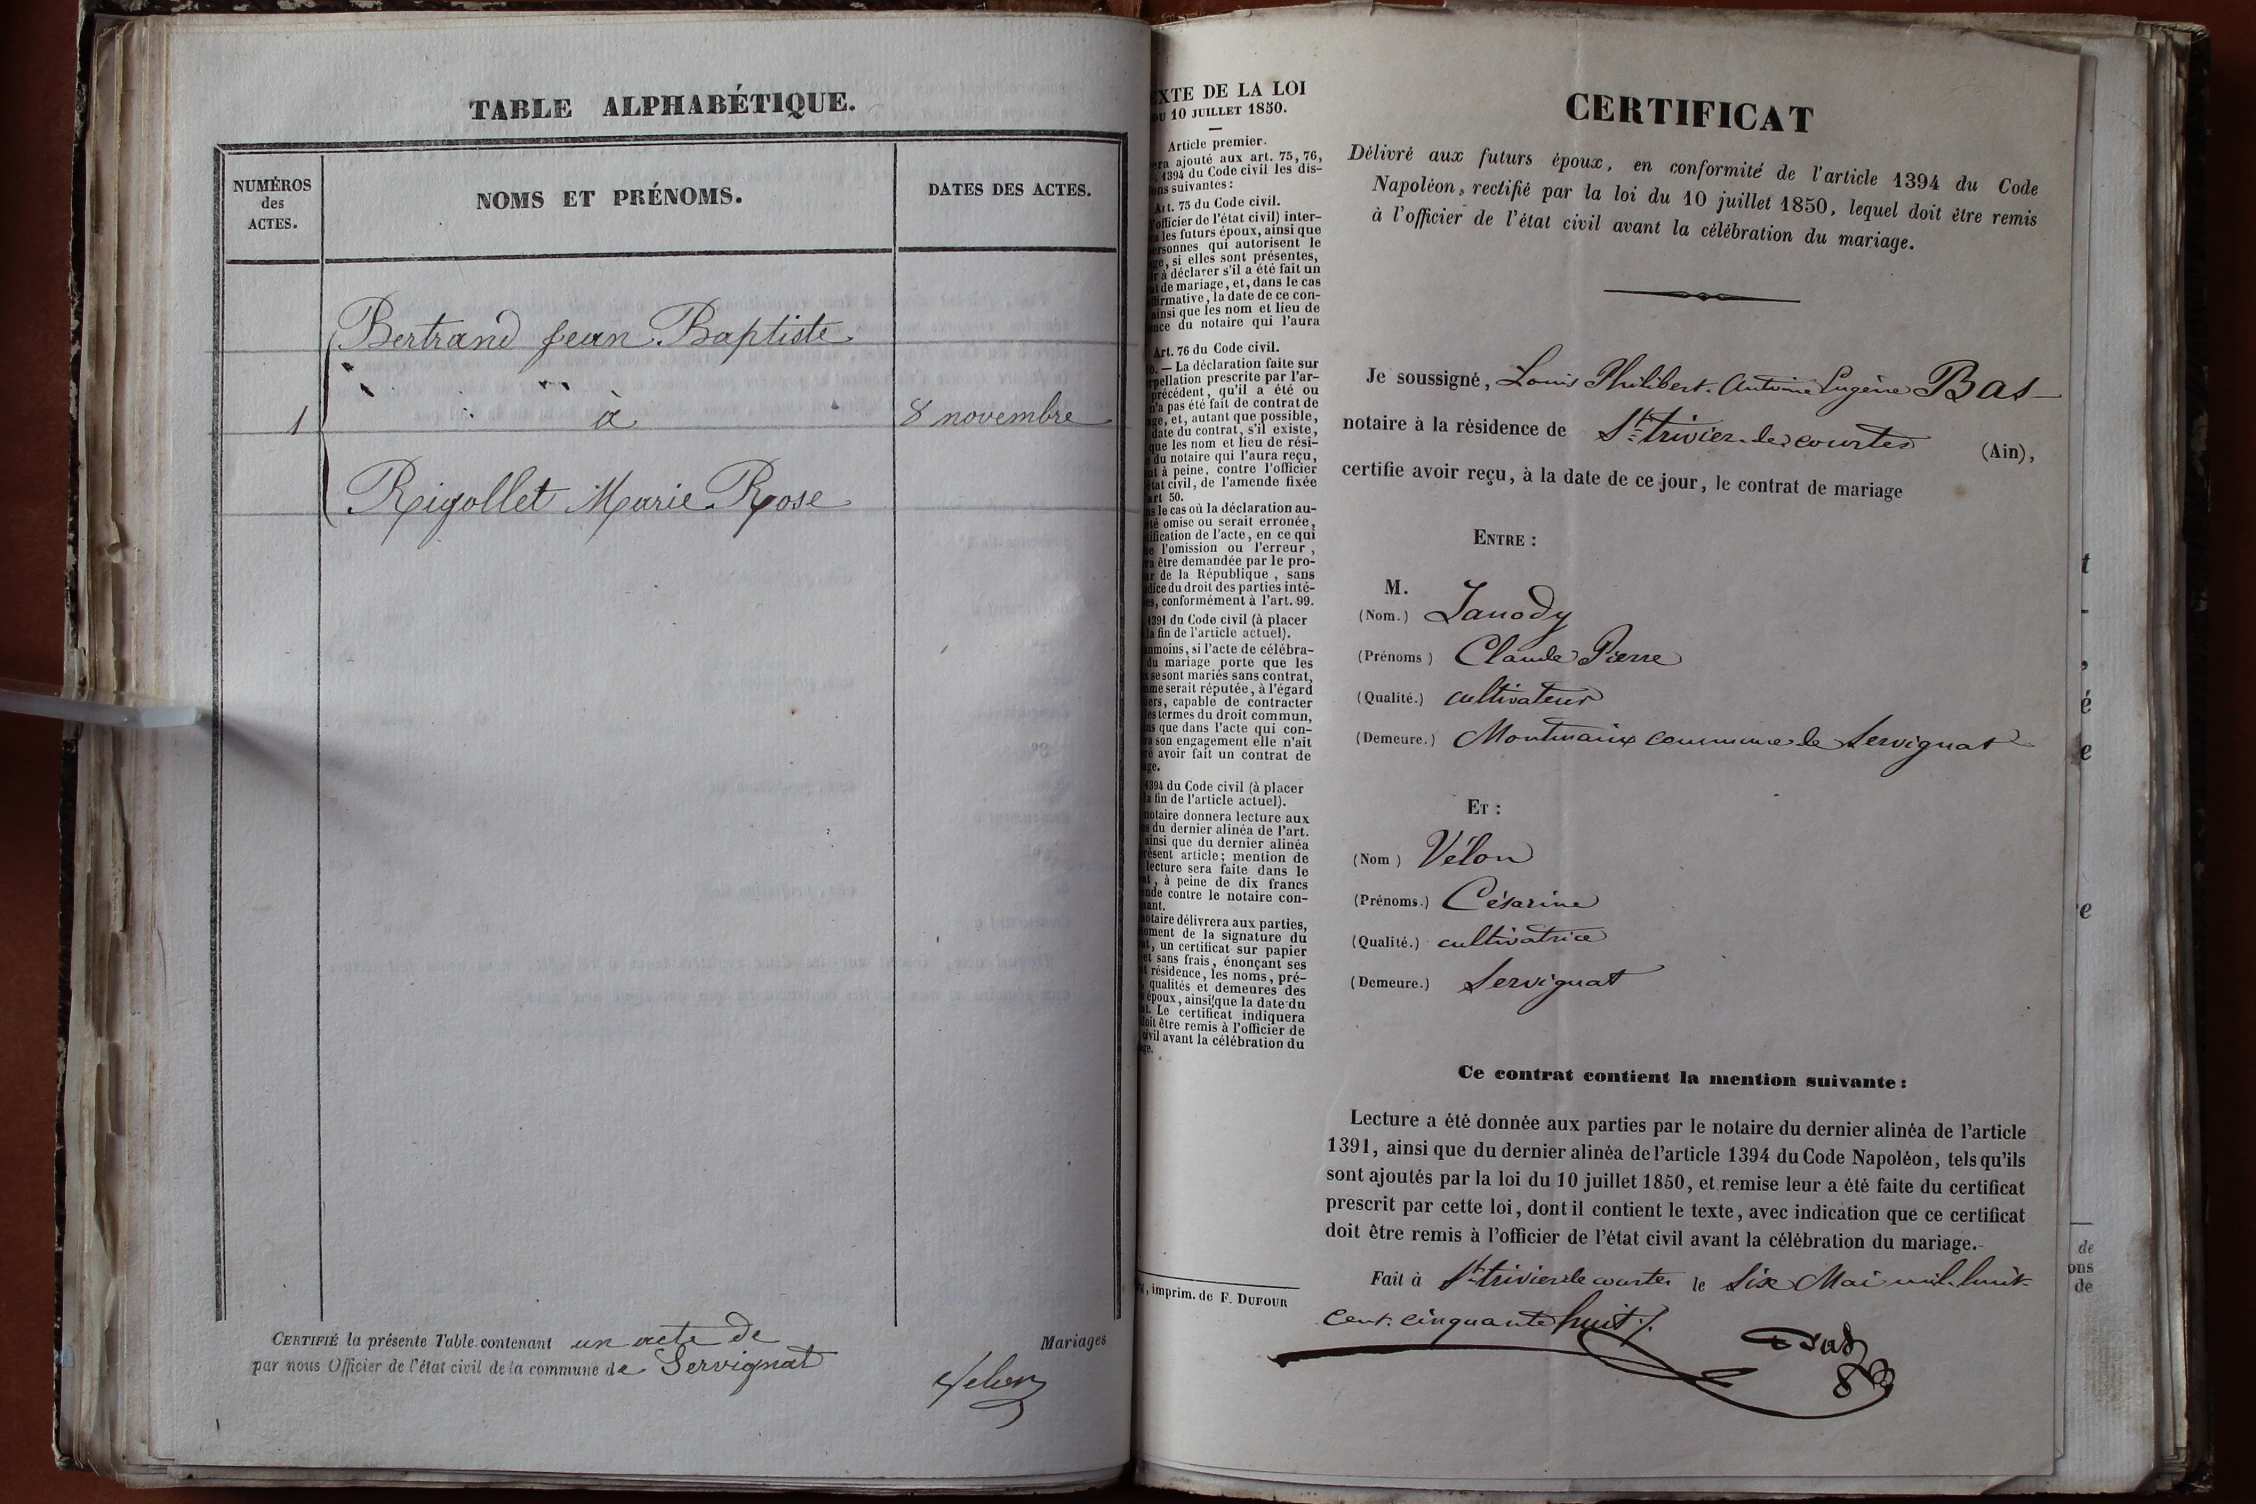 TABLE ALPHABÉTIQUE.
NUMÉROS
des
ACTES.
NOMS ET PRÉNOMS.
DATES DES ACTES.
Bertrand Jean Baptiste
1 à 8 novembre
Rigollet Marie Rose
CERTIFIÉ la présente Table contenant un acte de Mariages
par nous Officier de l'état civil de la commune de Servignat
TEXTE DE LA LOI
DU 10 JUILLET 1850.
Article premier.
ajouté aux art. 75, 76,
1394 du Code civil les dis-
suivantes :
Art. 75 du Code civil.
l'officier de l'état civil) inter-
les futurs époux, ainsi que
personnes qui autorisent le
si elles sont présentes,
à déclarer s'il a été fait un
de mariage, et, dans le cas
affirmative, la date de ce con-
ainsi que les nom et lieu de
du notaire qui l'aura
Art. 76 du Code civil.
— La déclaration faite sur
prescrite par l'ar-
précédent, qu'il a été ou
n'a pas été fait de contrat de
et, autant que possible,
date du contrat, s'il existe,
que les nom et lieu de rési-
du notaire qui l'aura reçu,
à peine, contre l'officier
civil, de l'amende fixée
art 50.
le cas où la déclaration au-
été omise ou serait erronée,
de l'acte, en ce qui
l'omission ou l'erreur,
être demandée par le pro-
de la République, sans
du droit des parties inté-
conformément à l'art. 99.
1391 du Code civil (à placer
la fin de l'article actuel).
si l'acte de célébra-
du mariage porte que les
se sont mariés sans contrat,
serait réputée, à l'égard
capable de contracter
les termes du droit commun,
que dans l'acte qui con-
son engagement elle n'ait
avoir fait un contrat de
1394 du Code civil (à placer
la fin de l'article actuel).
notaire donnera lecture aux
du dernier alinéa de l'art.
ainsi que du dernier alinéa
présent article; mention de
lecture sera faite dans le
à peine de dix francs
contre le notaire con-
notaire délivrera aux parties,
moment de la signature du
un certificat sur papier
et sans frais, énonçant ses
résidence, les noms, pré-
qualités et demeures des
époux, ainsi que la date du
Le certificat indiquera
doit être remis à l'officier de
civil avant la célébration du
imprim. de F. DUFOUR
CERTIFICAT
Délivré aux futurs époux, en conformité de l'article 1394 du Code
Napoléon, rectifié par la loi du 10 juillet 1850, lequel doit être remis
à l'officier de l'état civil avant la célébration du mariage.
Je soussigné, Louis Philibert Antoine Eugène Bas
notaire à la résidence de St. trivier de courtes (Ain),
certifie avoir reçu, à la date de ce jour, le contrat de mariage
ENTRE :
M.
(Nom.) Janody
(Prénoms) Claude Pierre
(Qualité.) cultivateur
(Demeure.) Montmaix commune de Servignat
ET :
(Nom) Vélon
(Prénoms.) Césarine
(Qualité.) cultivatrice
(Demeure.) Servignat
Ce contrat contient la mention suivante :
Lecture a été donnée aux parties par le notaire du dernier alinéa de l'article
1391, ainsi que du dernier alinéa de l'article 1394 du Code Napoléon, tels qu'ils
sont ajoutés par la loi du 10 juillet 1850, et remise leur a été faite du certificat
prescrit par cette loi, dont il contient le texte, avec indication que ce certificat
doit être remis à l'officier de l'état civil avant la célébration du mariage.
Fait à St. trivier de courtes le Six Mai mil huit
cent. cinquante huit /.
Bas